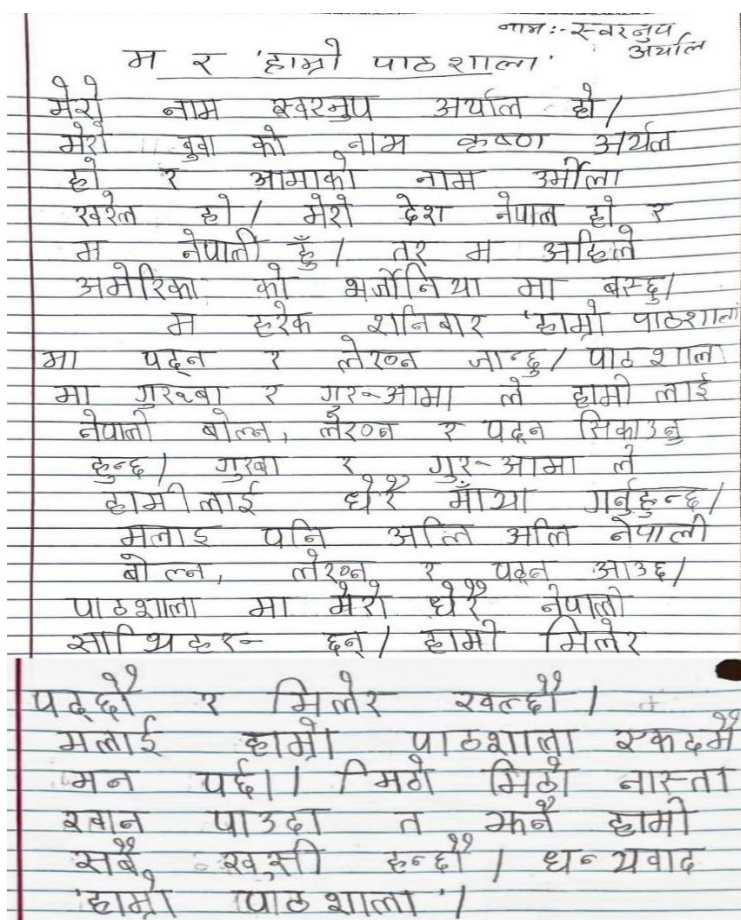 नाम:- स्वरनुप
अर्याल
म र 'हाम्रो पाठशाला'
मेरो नाम स्वरनुप अर्याल हो।
मेरो बुवा को नाम कृष्ण अर्यल
हो र आमाको नाम उर्मीला
खरेल हो। मेरो देश नेपाल हो र
म नेपाली हुँ। तर म अहिले
अमेरिका को भर्जोनिया मा बस्छु।
म हरेक शनिबार 'हाम्रो पाठशाला
मा पढ्न र लेख्न जान्छु। पाठशाल
मा गुरुबा र गुरु-आमा ले हामी लाई
नेपाली बोल्न, लेख्न र पढ्न सिकाउनु
हुन्छ। गुरुबा र गुरु-आमा ले
हामीलाई धेरै माँया गर्नुहुन्छ।
मलाइ पनि अलि अलि नेपाली
बोल्न, लेख्न र पढ्न आउछ।
पाठशाला मा मेरो धेरै नेपाली
साथिहरु छन्। हामी मिलेर
पढ्छौं र मिलेर खेल्छौं।
मलाई हाम्रो पाठशाला एकदमै
मन पर्छ। मिठो मिठो नास्ता
खान पाउदा त झनै हामी
सबै खुसी हुन्छौं। धन्यवाद
'हाम्रो पाठशाला'।